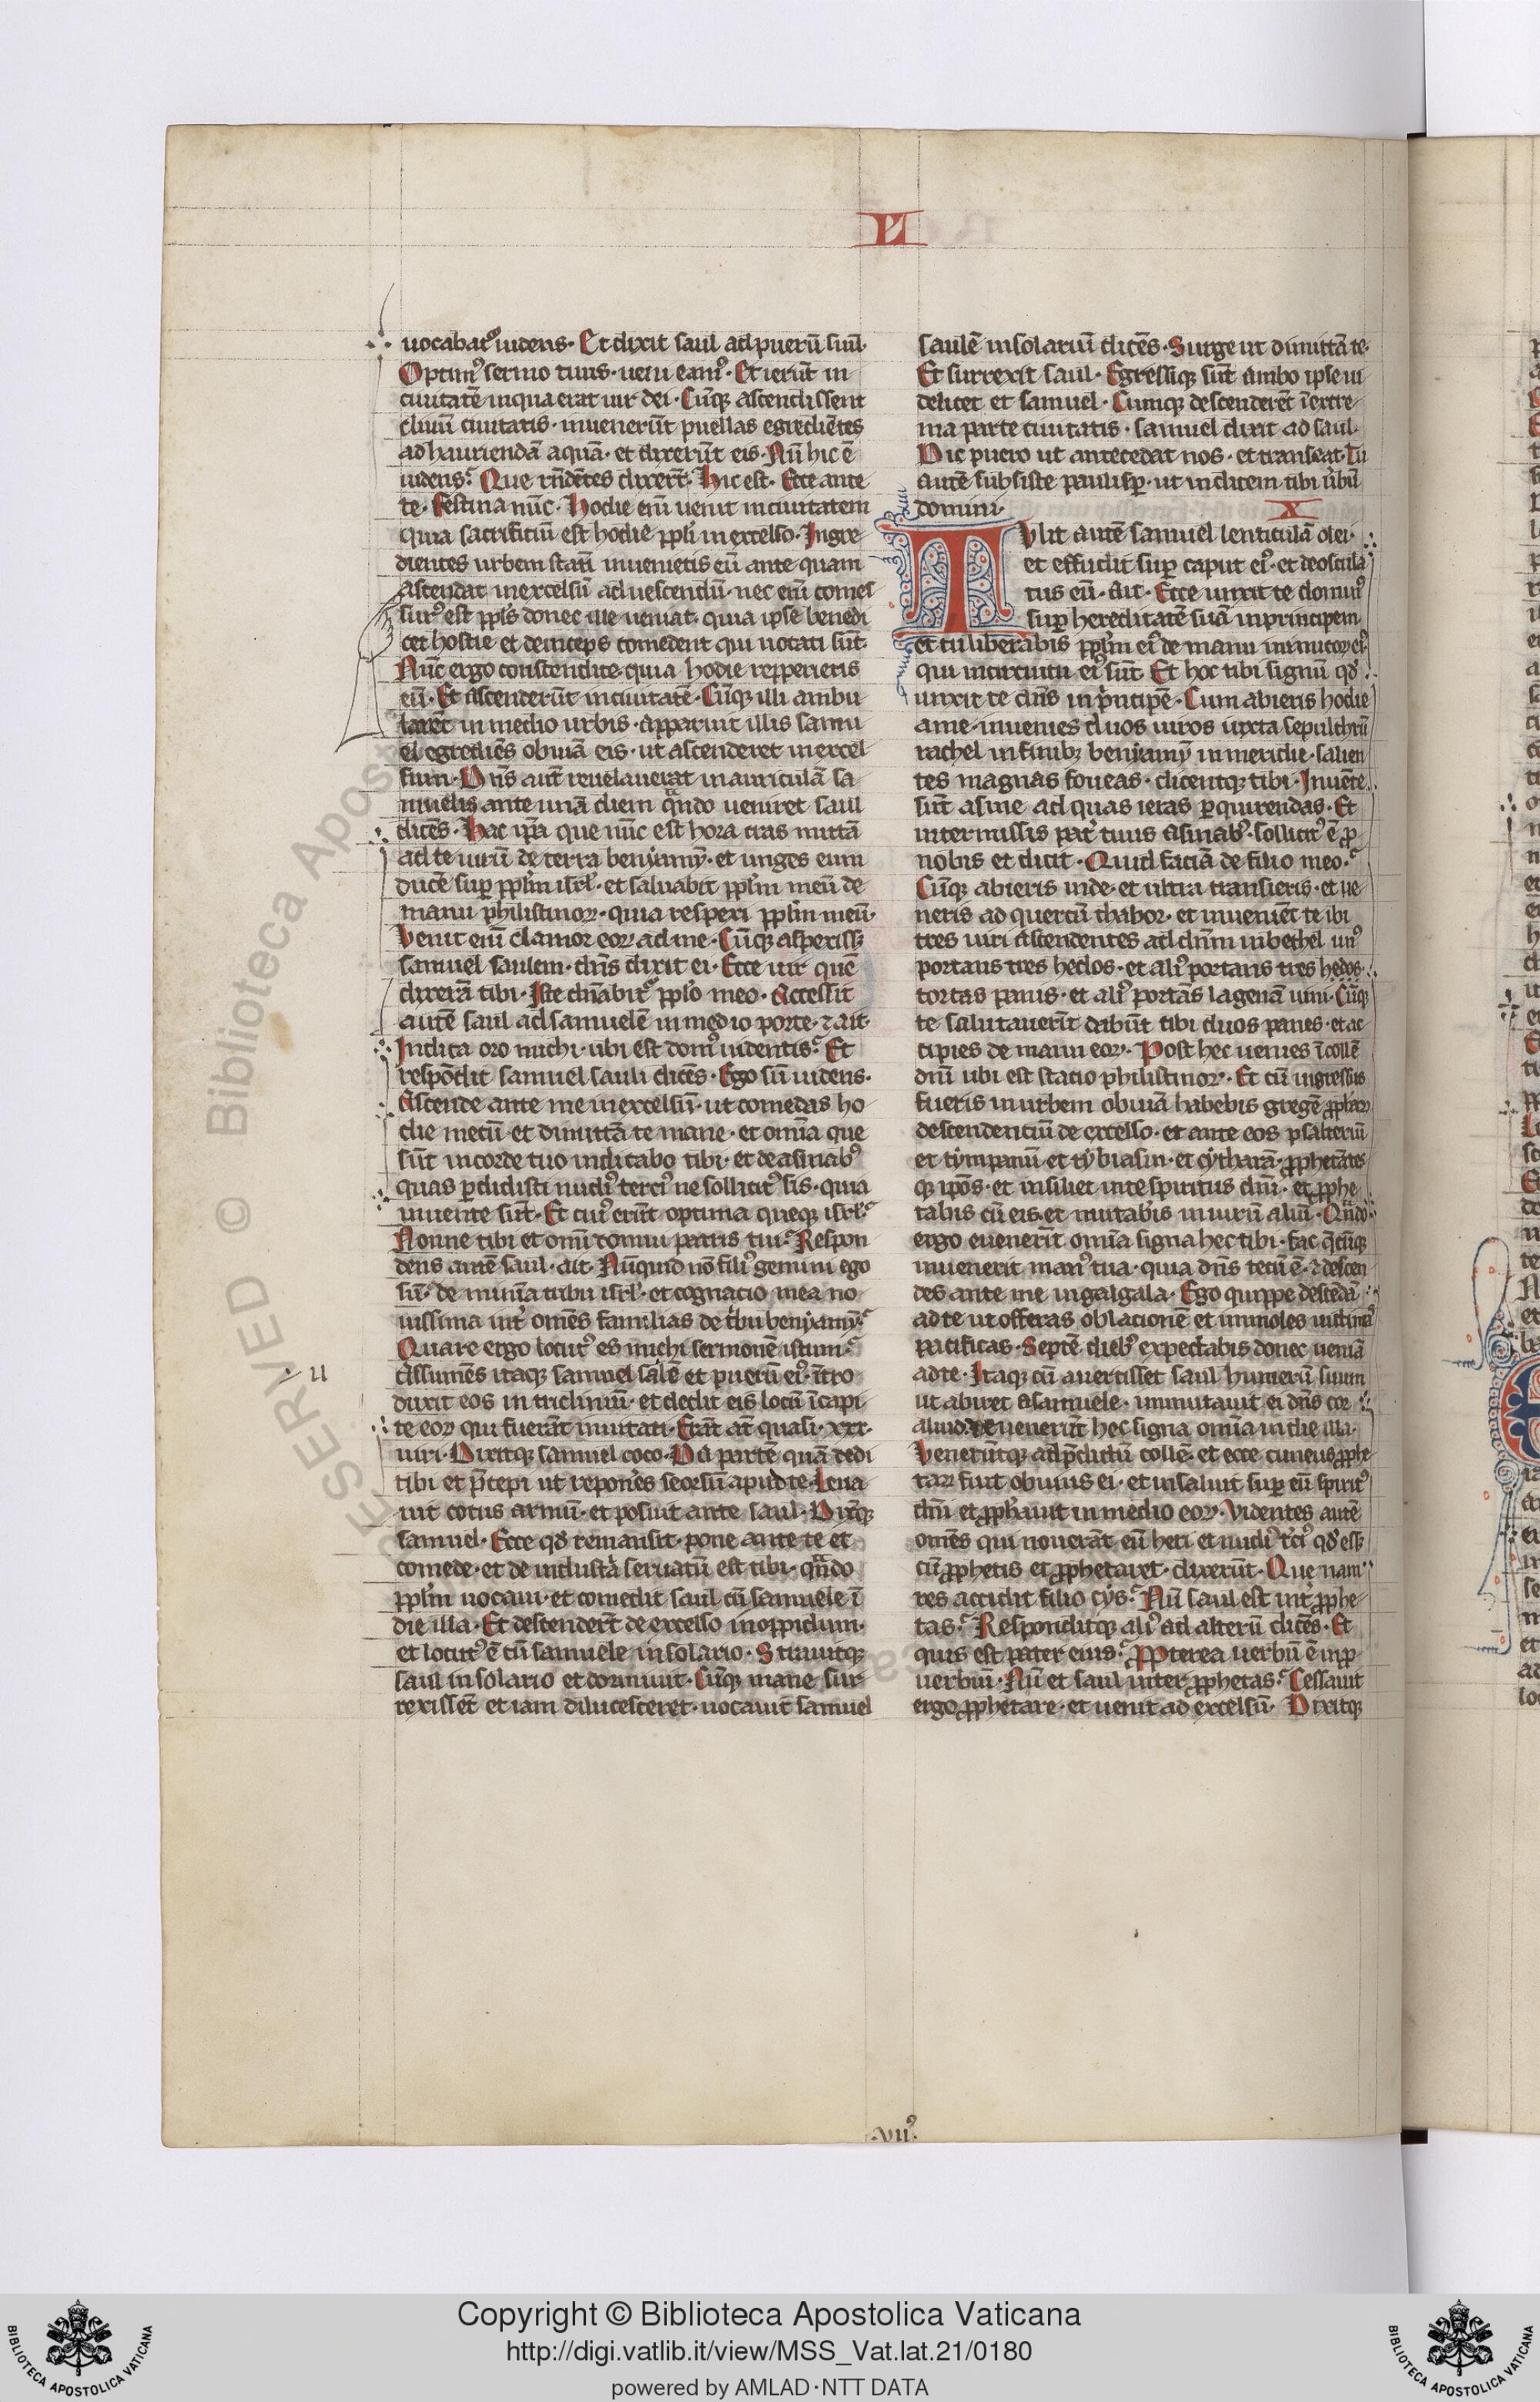 L
uocabat᷒ uidens. Et dixit saul ad pueru̅ suu̅.
Optim᷒ sermo tuus. ueni eam᷒. Et ieru̅t in
ciuitate̅ in qua erat uir dei. Cu̅q; ascendissent
cliuu̅ ciuitatis. inueneru̅t puellas egredie̅tes
ad hauriendā aquā. et dixeru̅t eis. Nu̅ hic ē
uidens. Que rn̅de̅tes dixer̅t. Hic est. Ecce ante
te. Festina nu̅c. Hodie eni̅ uenit in ciuitatem
quia sacrificiu̅ est hodie ppli̅ in excelso. Ingre
dientes urbem stati̅ inuenietis eu̅ ante quam
Ascendat in excelsu̅ ad uescendu̅. nec eni̅ comes
sur᷒ est ppl̅s donec ille ueniat. quia ipse benedi
cet hostie et deinceps comedent qui uocati su̅t.
Nu̅c ergo conscendite. quia hodie repperietis
eu̅. Et Ascenderu̅t in ciuitate̅. Cu̅q; illi ambu
lare̅t in medio urbis. apparuit illis samu
el egredie̅s obuiā eis. ut ascenderet in excel
sum. Dn̅s aut̅ reuelauerat in auriculā sa
muelis ante unā diem qn̅do ueniret saul
dice̅s. Hac ip̅a que nu̅c est hora cras mittā
ad te uiru̅ de terra benyamy̅. et unges eum
duce̅ sup̲ ppl̅m isrl̅. et saluabit ppl̅m meu̅ de
manu philistinoꝝ. quia respexi ppl̅m meu̅.
Venit eni̅ clamor eoꝝ ad me. Cu̅q; aspexiss;
samuel saulem. dn̅s dixit ei. Ecce uir que̅
dixerā tibi. Iste dn̅abit᷒ ppl̅o meo. Accessit
aute̅ saul ad samuele̅ in medio porte. ⁊ ait.
Indica oro michi. ubi est dom᷒ uidentis. Et
respo̅dit samuel sauli dice̅s. Ego su̅ uidens.
Ascende ante me in excelsu̅. ut comedas ho
die mecu̅. et dimittā te mane. et omi̅a que
su̅t in corde tuo indicabo tibi. et de asinab᷒
quas p̲didisti nudi᷒ terci᷒ ne sollicit᷒ sis. quia
inuente su̅t. Et cui᷒ eru̅t optima queq; isrl̅.
Nonne tibi et omi̅ domui patris tui. Respon
dens aute̅ saul. ait. Nu̅quid no̅ fili᷒ gemini ego
su̅. de minīa tribu isrl̅. et cognacio mea no
uissima int̅ ome̅s familias de t̍bu benyamy̅.
Quare ergo locut᷒ es michi sermone̅ istum.
Assume̅s itaq; samuel saule̅ et pueru̅ ei᷒. i̅tro
duxit eos in tricliniu̅. et dedit eis locu̅ i̅ capi
te eoꝝ qui fuerāt inuitati. Erāt at̅ quasi. xxx.
uiri. Dixitq; samuel coco. Da parte̅ quā dedi
tibi et p̅cepi ut repone̅s seorsu̅ apud te. Leua
uit cocus armu̅. et posuit ante saul. Dixi̅tq;
samuel. Ecce qd̅ remansit. pone ante te et
comede. et de industria seruatu̅ est tibi. qn̅do
ppl̅m uocaui. et comedit saul cu̅ samuele i̅
die illa. Et descender̅t de excelso in oppidum.
et locut᷒ ē cu̅ samuele in solario. Strauitq;
saul in solario et dormiuit. Cu̅q; mane sur
rexisse̅t et iam dilucesceret. uocauit samuel
saule̅ in solariu̅ dice̅s. Surge ut dimittā te.
Et surrexit saul. Egressiq; su̅t ambo ipse ui
delicet et samuel. Cumq; descendere̅t i̅ extre
ma parte ciuitatis. samuel dixit ad saul.
Dic puero ut antecedat nos. et transeat. Tu
aute̅ subsiste paulisp̲. ut indicem tibi u̍bu̅
domini.
X
Tvlit aute̅ samuel lenticulā olei.
et effudit sup̲ caput ei᷒. et deoscula
tus eu̅. Ait. Ecce unxit te domin᷒
sup̲ hereditate̅ suā in principem.
et tu liberabis ppl̅m ei᷒ de manu inimicoꝝ ei᷒
qui in circuitu ei᷒ su̅t. Et hoc tibi signu̅ qd̅
unxit te dn̅s in p̍ncipe̅. Cum abieris hodie
a me. inuenies duos uiros iuxta sepulchru̅
rachel in finib; benyamy̅ in meridie. salien
tes magnas foueas. dicentq; tibi. Inuente
su̅t asine ad quas ieras p̲quirendas. Et
intermissis pat̅ tuus Asinab᷒. sollicit᷒ ē p̱
nobis et dicit. Quid faciā de filio meo.
Cu̅q; abieris inde. et ultra transieris. et ue
neris ad quercu̅ thabor. et inuenie̅t te ibi
tres uiri Ascendentes ad dn̅m in bethel. un᷒
portans tres hedos. et ali᷒ portans tres hedos
tortas panis. et ali᷒ portāns lagenā uini. Cu̅q;
te salutaueri̅t dabu̅t tibi duos panes. et ac
cipies de manu eoꝝ. Post hec uenies i̅ colle̅
dn̅i ubi est stacio philistinoꝝ. Et cu̅ ingressus
fueris in urbem obuiā habebis grege̅ pp̱haꝝ
descendenciu̅ de excelso. et ante eos psalteriu̅
et ty̅mpanu̅ et ty̅biasin. et cytharā. pp̱hetāte̅s
q; ip̅os. et insiliet in te spiritus dn̅i. et pp̱he
tabis cu̅ eis. et mutabis in uiru̅ aliu̅. Qn̅do
ergo eueneri̅t omi̅a signa hec tibi. fac q̅cu̅q;
inuenerit man᷒ tua. quia dn̅s tecu̅ ē. ⁊ descen
des ante me in galgala. Ego quippe desce̅dā
ad te ut offeras oblacione̅ et immoles uictimas
pacificas. Septe̅ dieb᷒ expectabis donec ueniā
ad te. Itaq; cu̅ auertisset saul humeru̅ suum
ut abiret a samuele. immutauit ei dn̅s cor
aliud. et ueneru̅t hec signa omi̅a in die illa.
Veneru̅tq; ad p̅dictu̅ colle̅. et ecce cuneus pp̱he
taꝝ fuit obuius ei. et insaluit sup̲ eu̅ spirit᷒
dn̅i et pp̱hauit in medio eoꝝ. Videntes aute̅
ome̅s qui nouerāt eu̅ heri et nudi᷒ t̍ci᷒ qd̅ ess;
cu̅ pp̱hetis et pp̱hetaret. dixeru̅t. Que nam
res accidit filio cys. Nu̅ saul est int̅ pp̱he
tas. Responditq; ali᷒ ad alteru̅ dice̅s. Et
quis est pater eius. Pp̱terea uerbu̅ ē in p̱
uerbiu̅. Nu̅ et saul inter pp̱hetas. Cessauit
ergo pp̱hetare. et uenit ad excelsu̅. Dixitq;
.vii᷒.
Copyright © Biblioteca Apostolica Vaticana
http://digi.vatlib.it/view/MSS_Vat.lat.21/0180
powered by AMLAD·NTT DATA